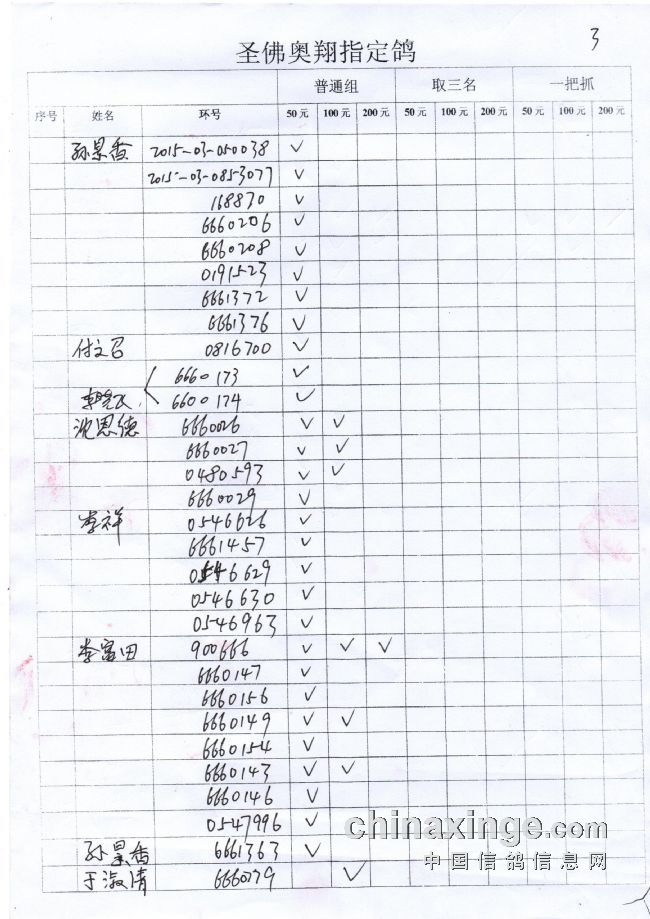 3
圣佛奥翔指定鸽
普通组 取三名 一把抓
序号 姓名 环号 50元 100元 200元 50元 100元 200元 50元 100元 200元
孙景香 2015-03-050038 ✓
2015-03-0853077 ✓
168870 ✓
6660206 ✓
6660208 ✓
0191523 ✓
6661372 ✓
6661376 ✓
付文召 0816700 ✓
6660173 ✓
6600174 ✓
沈恩德 6660026 ✓ ✓
6660027 ✓ ✓
0480593 ✓ ✓
6660029 ✓
李祥 0546626 ✓
6661457 ✓
0546629 ✓
0546630 ✓
0546963 ✓
李富田 900666 ✓ ✓ ✓
6660147 ✓
6660156 ✓
6660149 ✓ ✓
6660154 ✓
6660143 ✓ ✓
6660146 ✓
0547996 ✓
孙景香 6661363 ✓
于淑清 6660179 ✓
chinaxinge.com
中国信鸽信息网